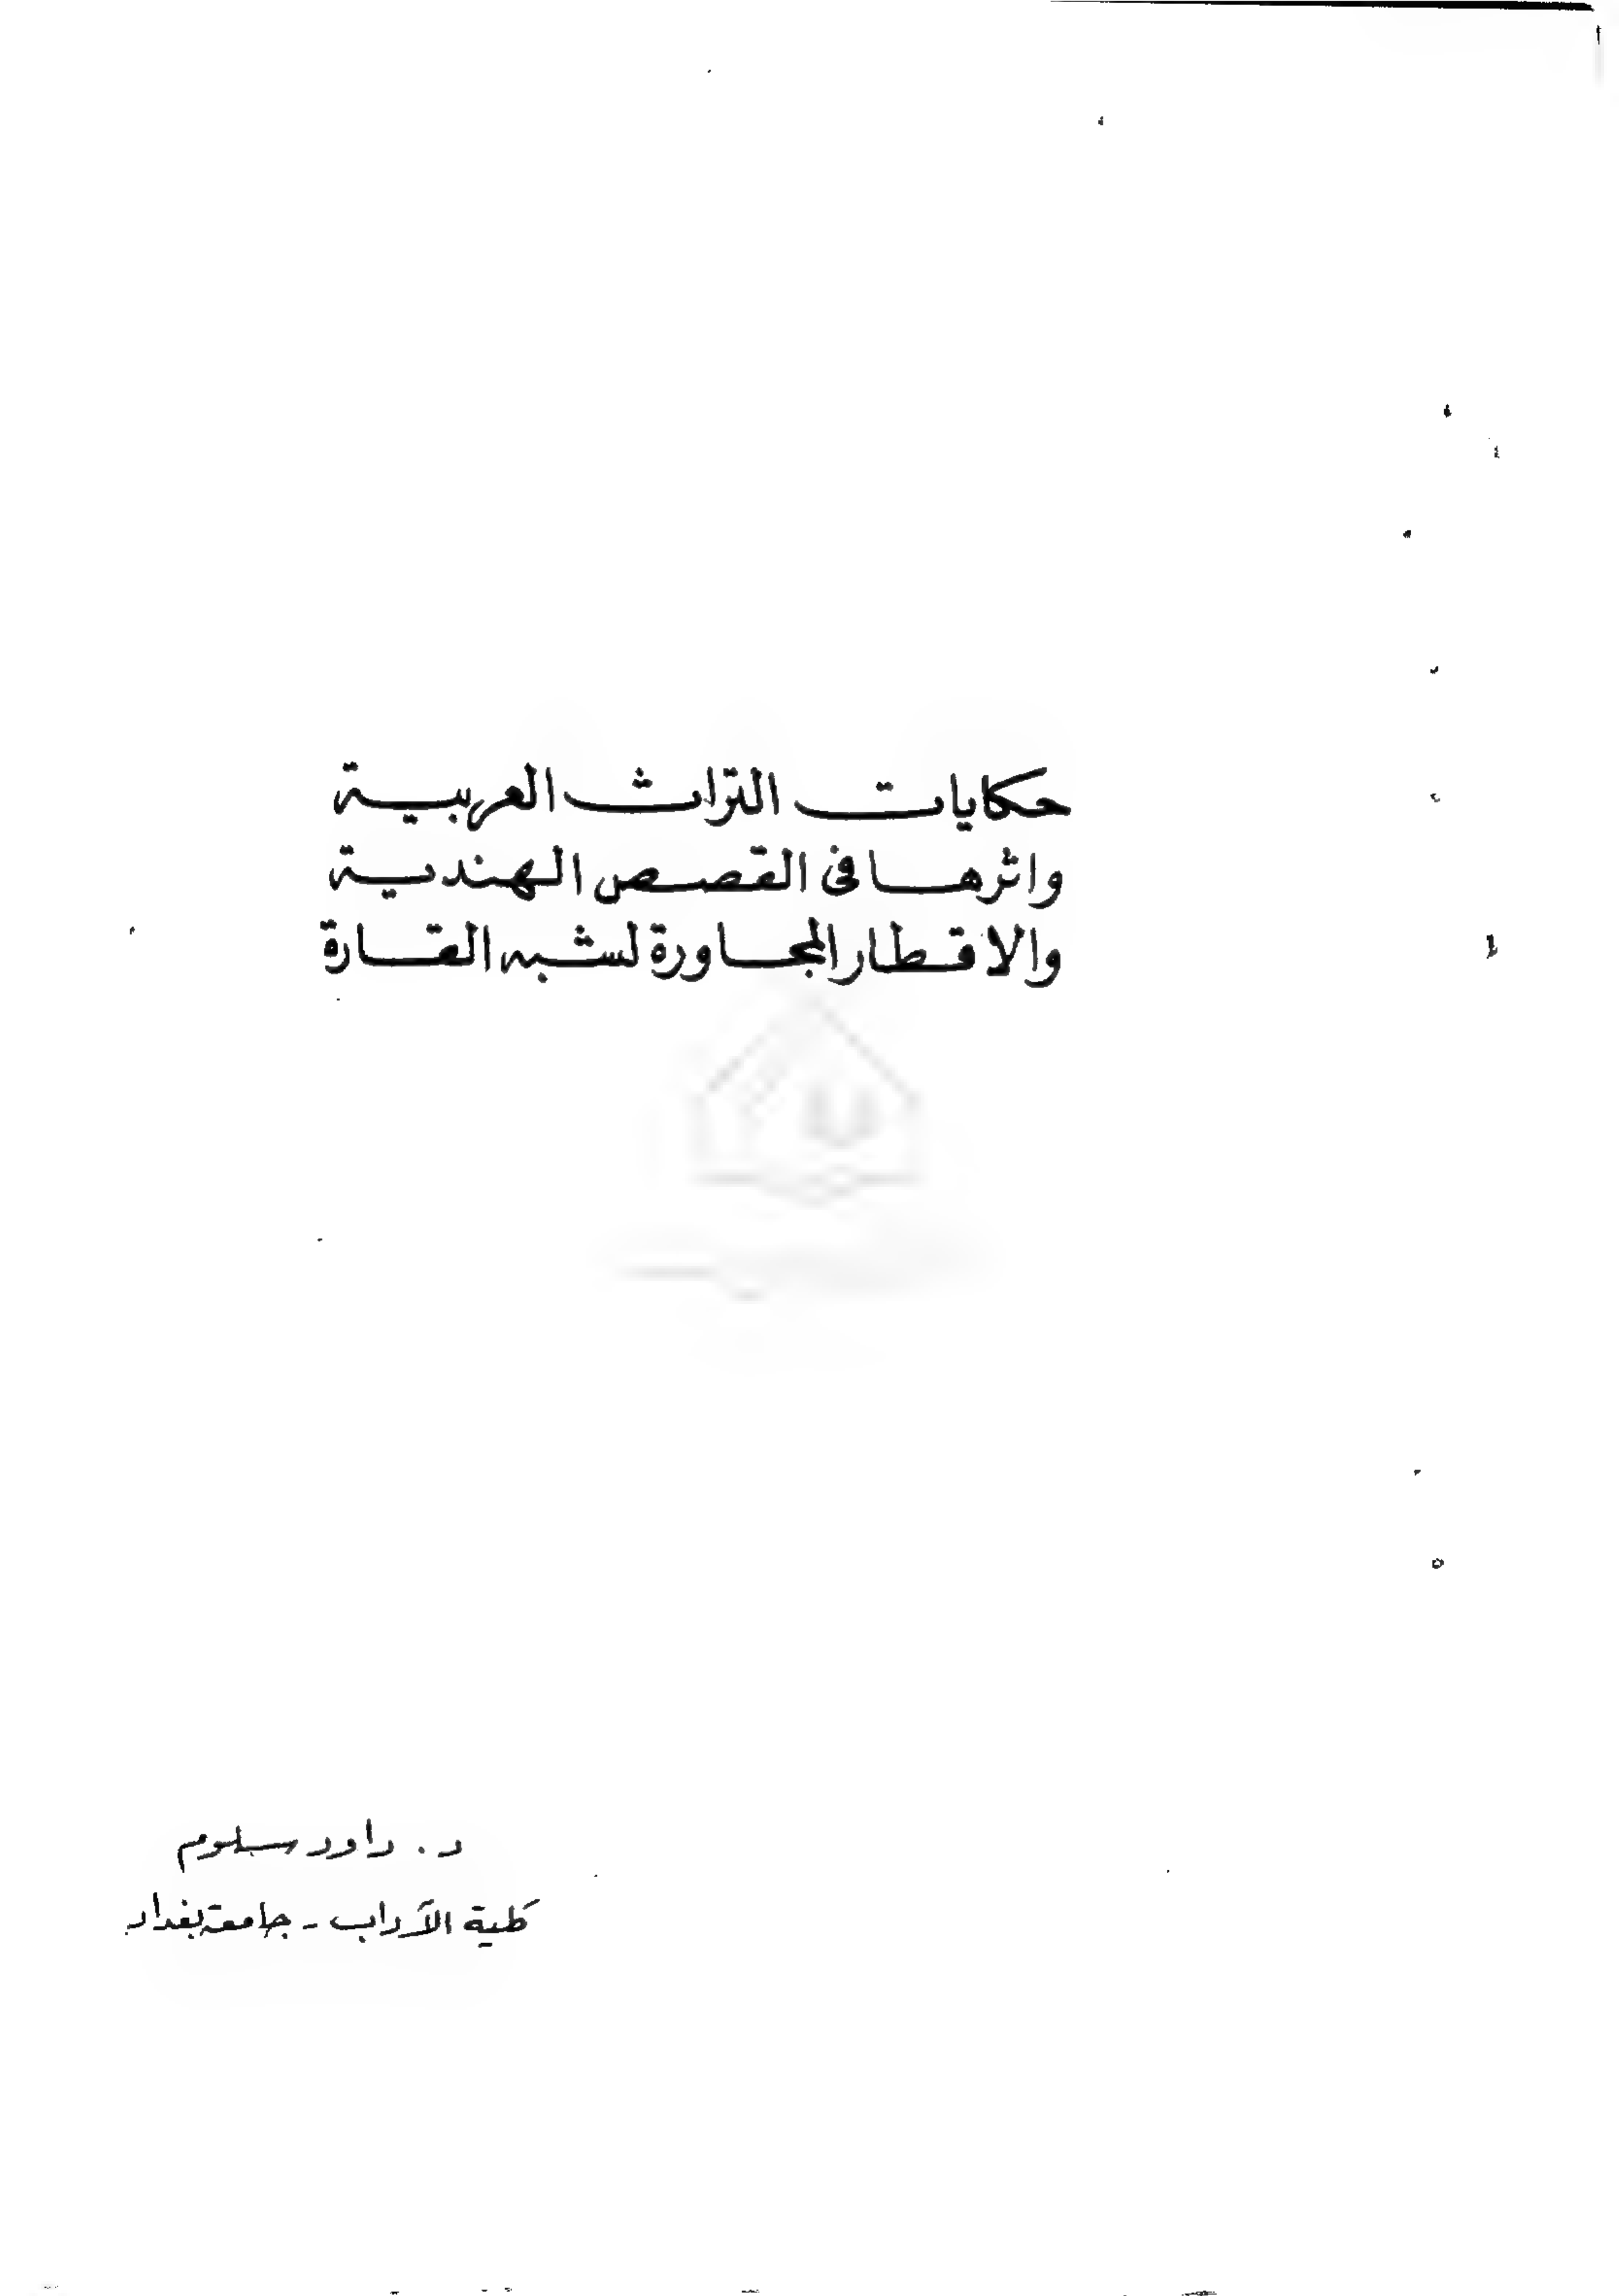 حكايات التراث العربية
واثرها في القصص الهندية
والاقطار المجاورة لشبه القارة
د. داود سلوم
كلية الآداب - جامعة بغداد